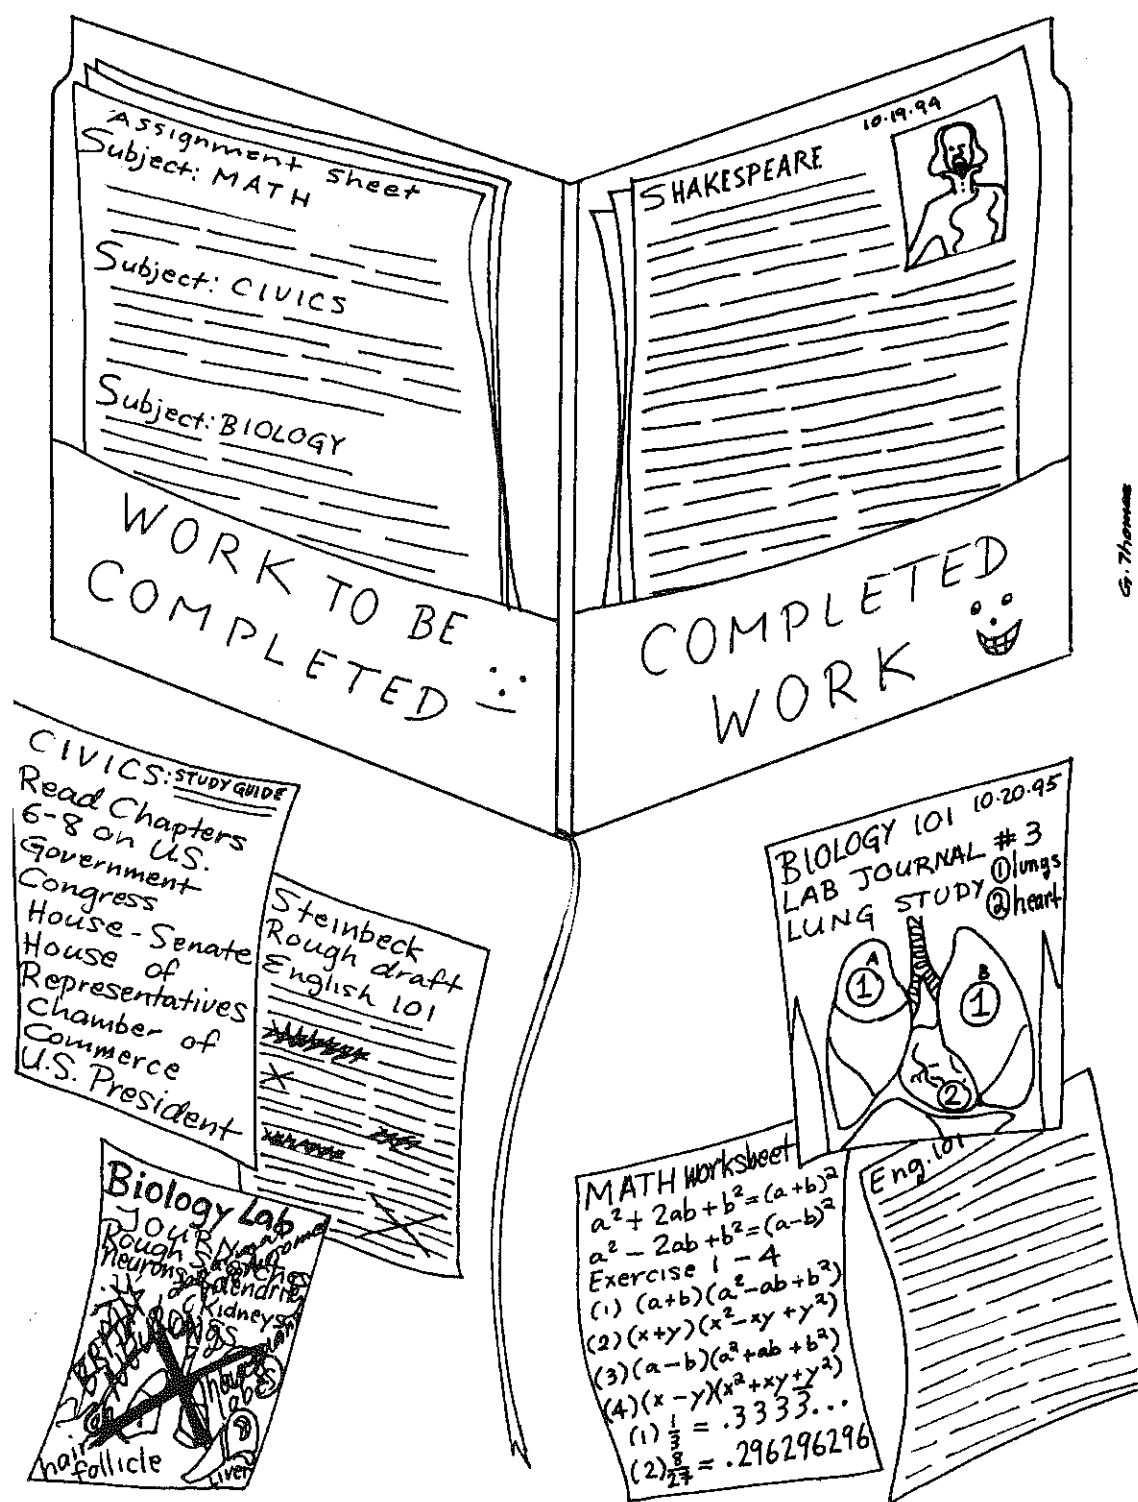 Assignment sheet
Subject: MATH
Subject: CIVICS
Subject: BIOLOGY
WORK TO BE
COMPLETED
10·19·94
SHAKESPEARE
COMPLETED
WORK
G. Thomas
CIVICS: STUDY GUIDE
Read Chapters
6-8 on U.S.
Government
Congress
House - Senate
House of
Representatives
Chamber of
Commerce
U.S. President
Steinbeck
Rough draft
English 101
Biology Lab
JOUR
Rough
neurons
Kidneys
lungs
hair
follicle
liver
BIOLOGY 101 10·20·95
LAB JOURNAL #3
LUNG STUDY ① lungs
② heart
A
1
B
1
2
MATH Worksheet
a² + 2ab + b² = (a+b)²
a² - 2ab + b² = (a-b)²
Exercise 1 - 4
(1) (a+b)(a²-ab+b²)
(2) (x+y)(x²-xy+y²)
(3) (a-b)(a²+ab+b²)
(4) (x-y)(x²+xy+y²)
(1) 1/3 = .3333...
(2) 8/27 = .296296296
Eng. 101